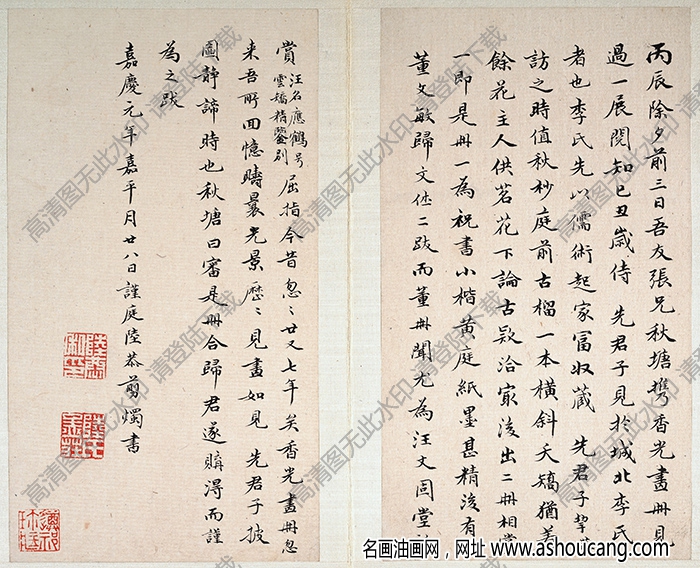 丙辰除夕前三日吾友張兄秋塘攜香光畫冊見
過一展閱知己丑歲侍 先君子見於城北李氏
者也李氏先以儒術起家富收藏 先君子挈
訪之時值秋杪庭前古榴一本橫斜夭矯猶著
餘花主人供茗花下論古歘洽宴後出二冊相
一即是冊一為祝書小楷黃庭紙墨甚精後有
董文敏歸文休二跋而董冊聞尤為汪文固堂
賞 汪名應鶴号雲矯精鑒別 屈指今昔忽〻廿又七年矣香光畫冊忽
来吾所回憶疇曩光景歷〻見畫如見 先君子披
圖静諦時也秋塘曰審是冊合歸君遂購淂而謹
為之跋
嘉慶元年嘉平月廿八日謹庭陸恭剪燭書
高清图无此水印 请登陆下载
名画油画网，网址 www.ashoucang.com